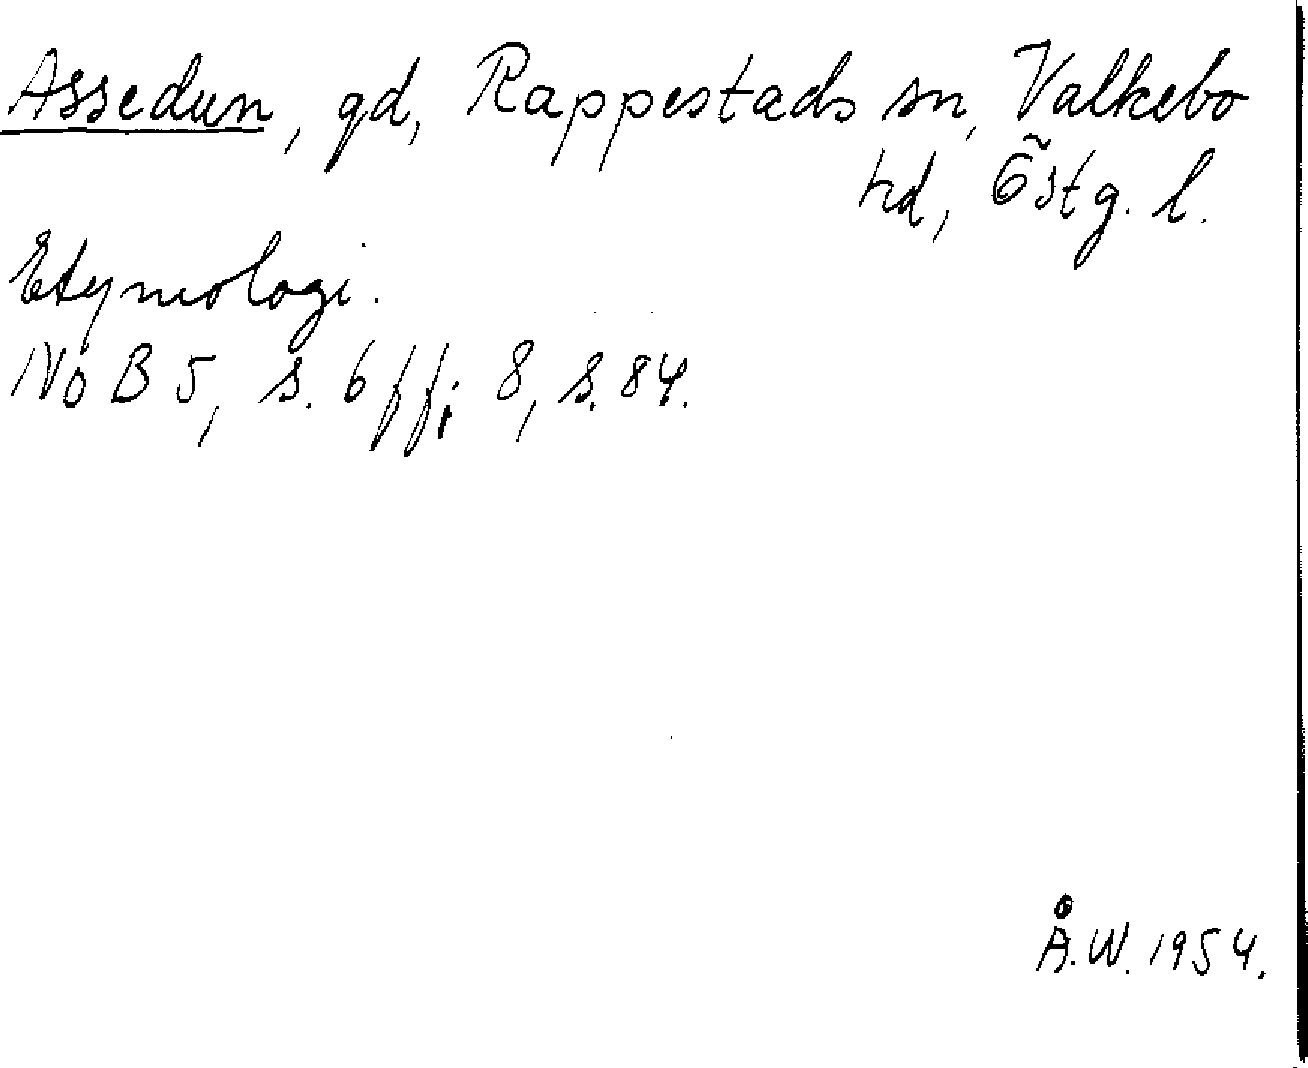 Assedun, gd, Rappestads sn, Valkebo
hd, Östg. l.
Etymologi.
NoB 5, s. 6 ff; 8, s. 84.
Å.W. 1954.